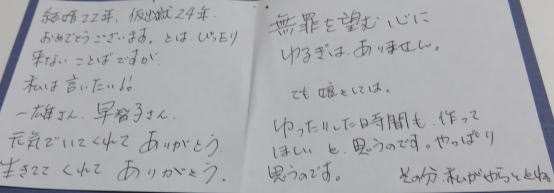 結婚22年、仮出獄24年、
おめでとうございます。とは、ぴったり
来ない ことばですが
私は言いたい!!
一雄さん、早智子さん、
元気でいてくれて ありがとう、
生きてて くれて ありがとう。
無罪を望む心に
ゆるぎは、ありません。
でも 娘としては、
ゆったりした時間も、作って
ほしい と、思うのです。やっぱり
思うのです。
その分、私ががんばらんとね